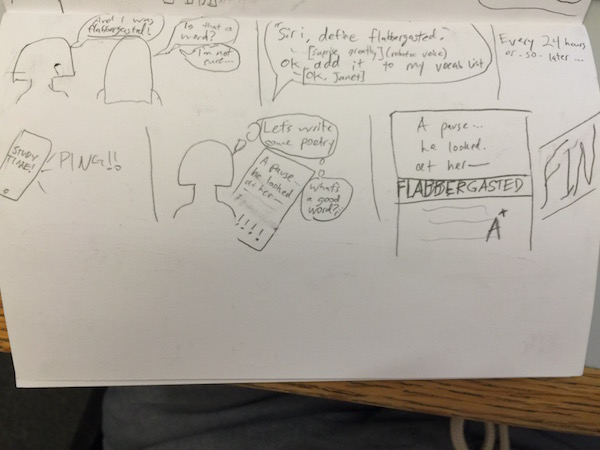 And I was
flabbergasted!
Is that a
word?
I'm not
sure...
"Siri, define flabbergasted."
[suprise greatly] (robotic voice)
OK, add it to my vocab list
[OK, Janet]
Every 24 hours
or so later...
STUDY
TIME!
PING!!
Let's write
some poetry
A pause...
he looked
at her—
!!!!
What's
a good
word?
A pause...
he looked
at her—
FLABBERGASTED
A+
FIN